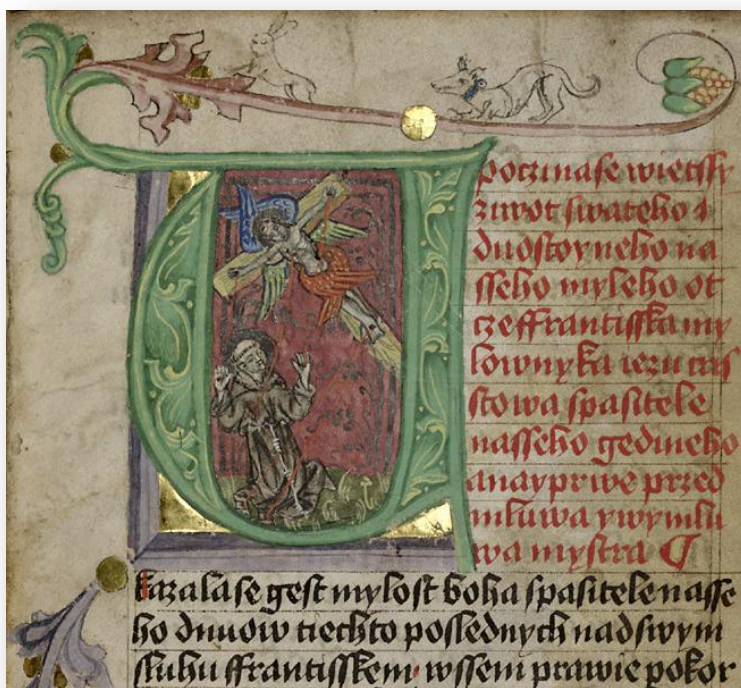 poczinase wietssy
ziwot swateho a
duostoyneho na
sseho myleho ot
cze ffrantisska my
lownyka iezu cris
stowa spasitele
nasseho gedineho
a nayprwe przed
mluwa y wymlu
wa mystra
U kazala se gest mylost boha spasitele nasse
ho dnuow tiechto poslednych nad swym
sluhu ffrantisskem wssem prawie pokor